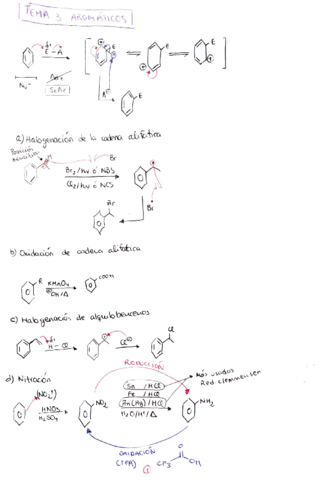 TEMA 3 - AROMÁTICOS
E - A
E
Nu⁻
SEAr
A⁻
E
a) Halogenación de la cadena alifática
Posición
bencílica
H
Br
Br₂/hν ó NBS
Cl₂/hν ó NCS
Br
Br
b) Oxidación de cadena alifática
R
KMnO₄
OH/Δ
COOH
c) Halogenación de alquilobencenos
H - Cl
Cl⊖
Cl
REDUCCIÓN
d) Nitración
(NO₂⁺)
HNO₃
H₂SO₄
NO₂
Sn / HCl
Fe / HCl
Zn(Hg) / HCl
H₂O/H⁺/Δ
Más usados
Red. clemmensen
NH₂
OXIDACIÓN
(TFA)
①
CF₃
O
OH